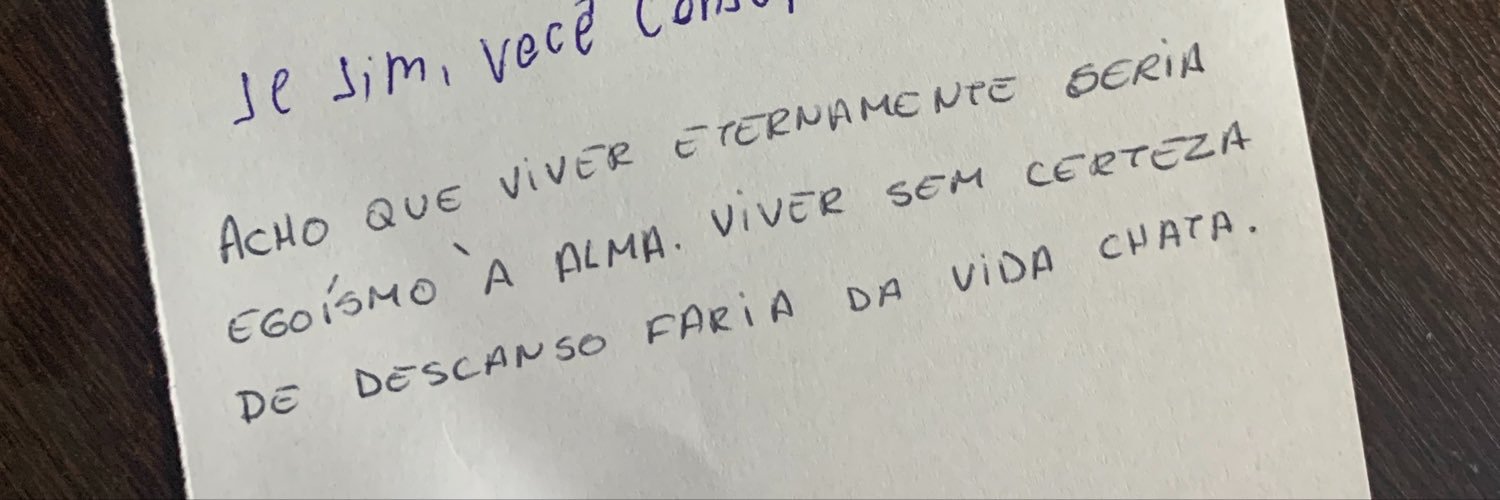 se sim, você
ACHO QUE VIVER ETERNAMENTE SERIA
EGOÍSMO À ALMA. VIVER SEM CERTEZA
DE DESCANSO FARIA DA VIDA CHATA.